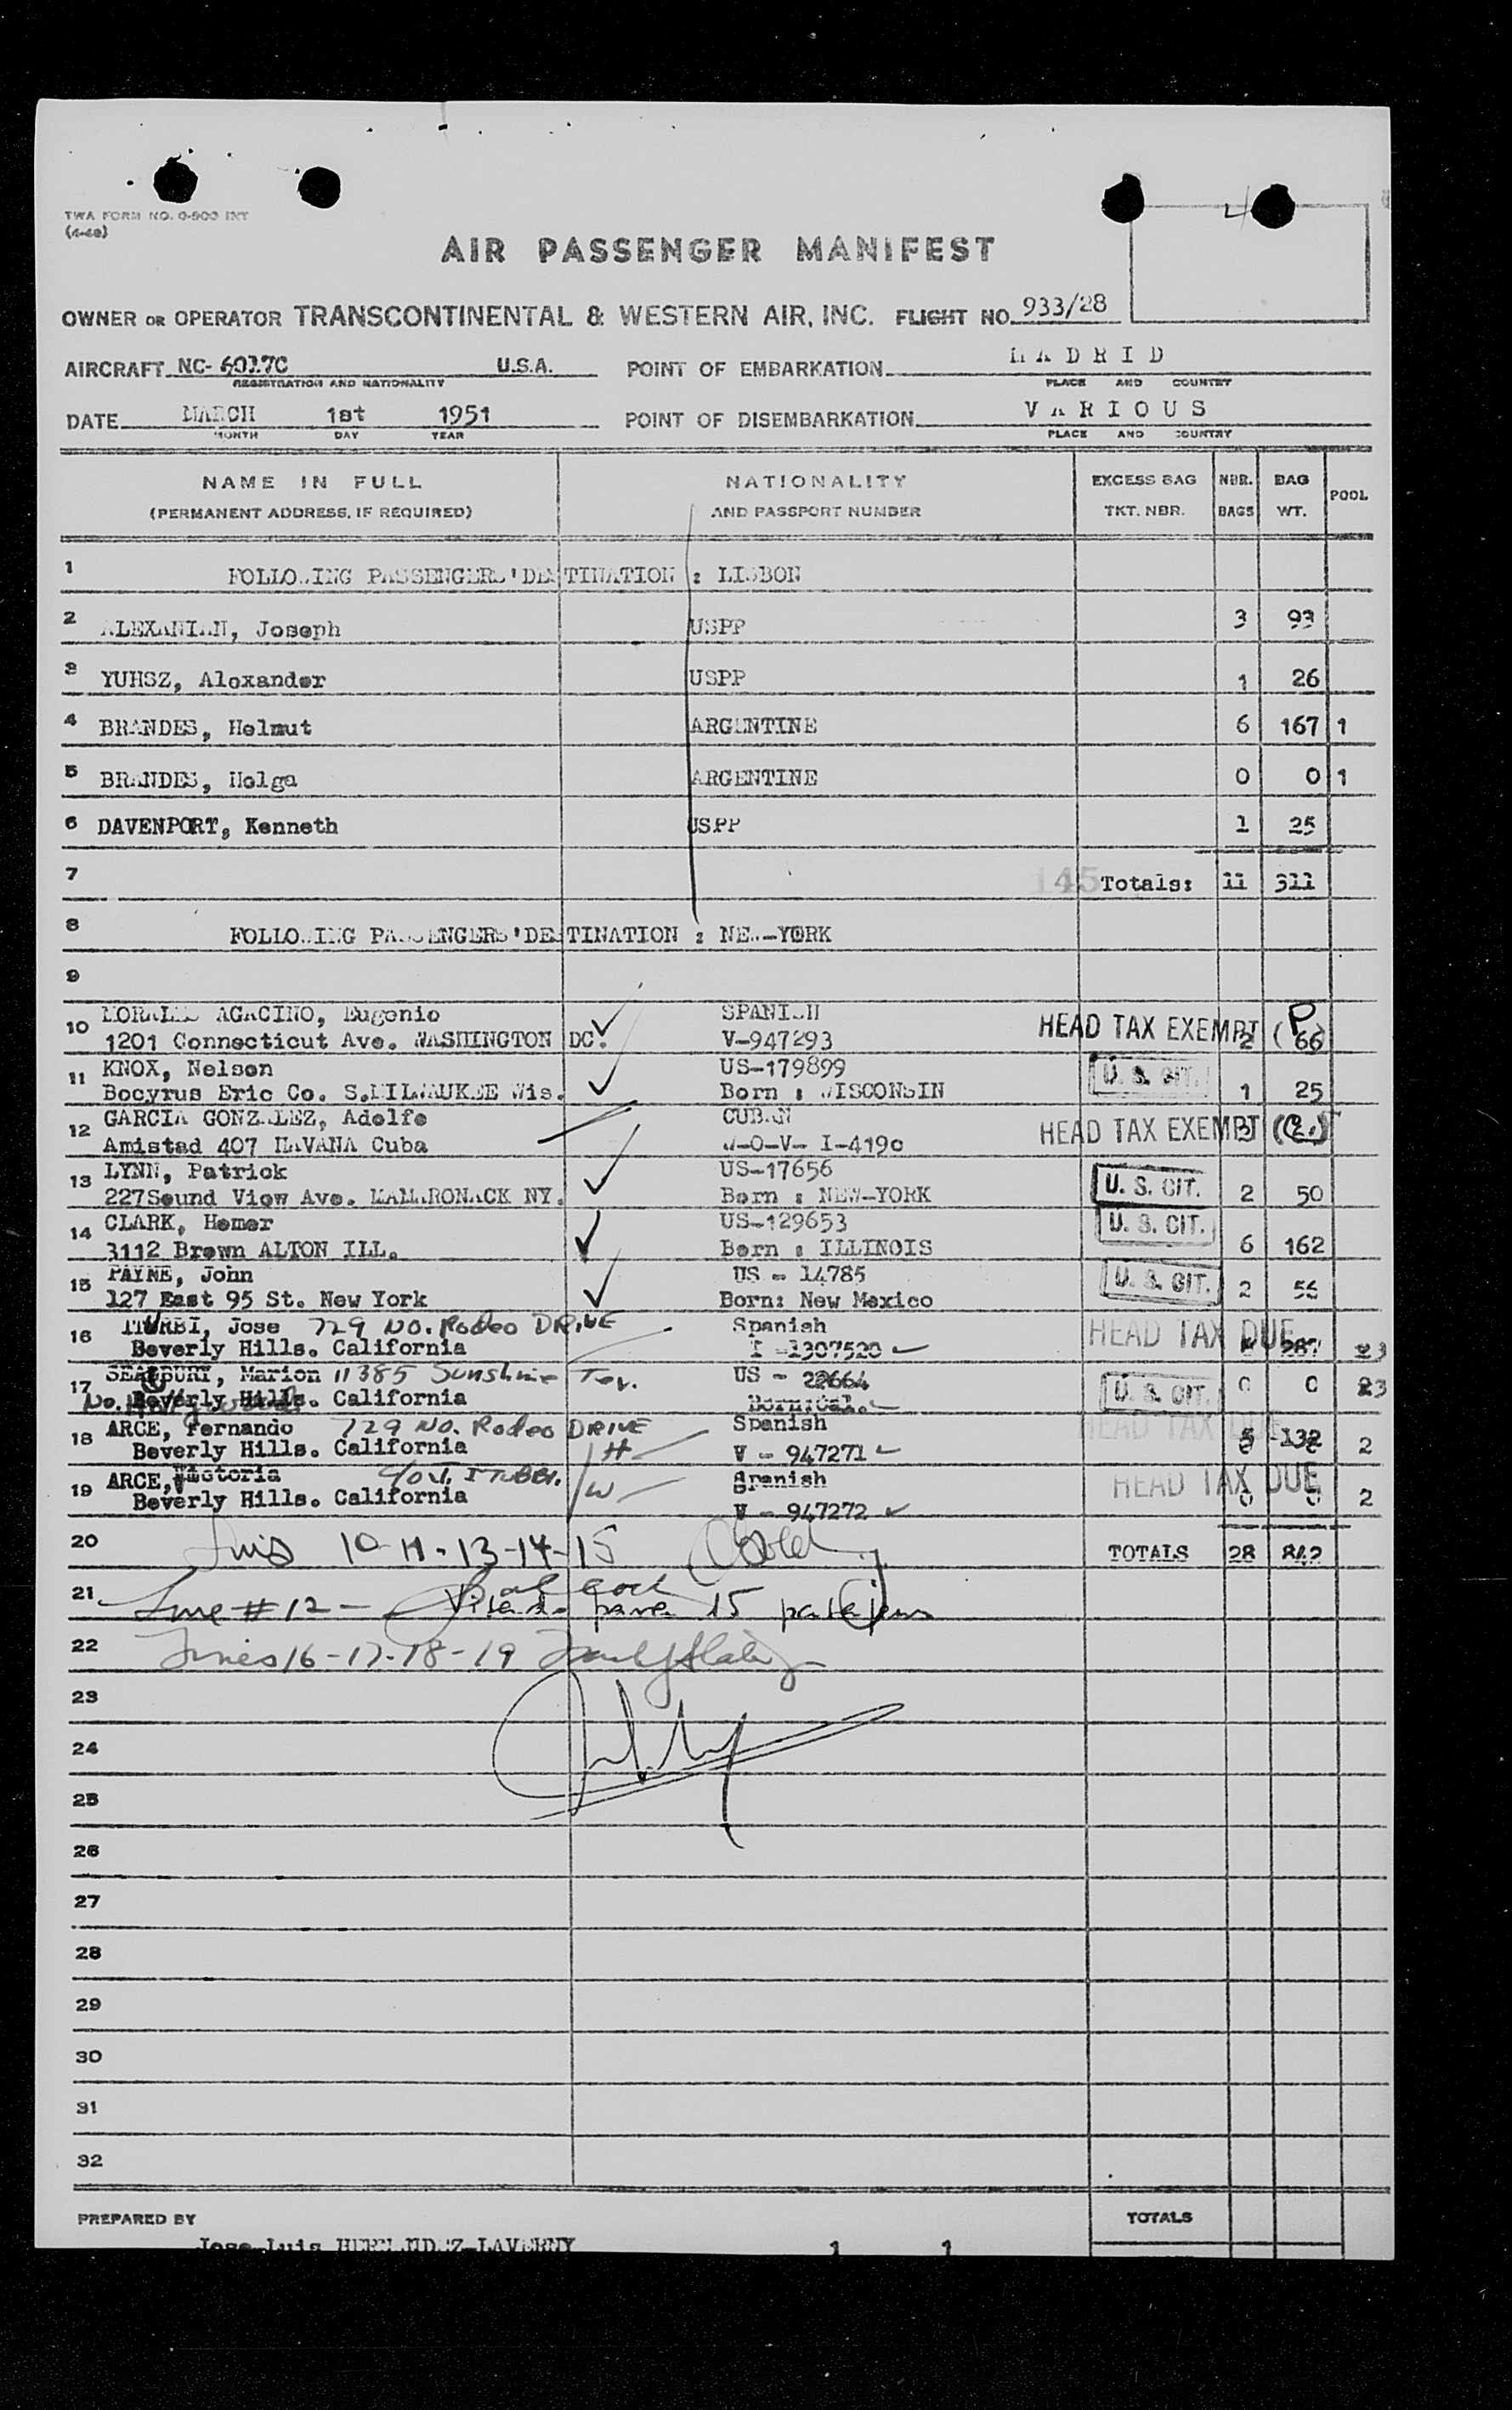 TWA FORM NO. 0-900 INT
(4-48)
AIR PASSENGER MANIFEST
OWNER OR OPERATOR TRANSCONTINENTAL & WESTERN AIR, INC. FLIGHT NO. 933/28
AIRCRAFT NC- 6017C U.S.A. POINT OF EMBARKATION MADRID
REGISTRATION AND NATIONALITY PLACE AND COUNTRY
DATE MARCH 1st 1951 POINT OF DISEMBARKATION VARIOUS
MONTH DAY YEAR PLACE AND COUNTRY
NAME IN FULL NATIONALITY EXCESS BAG NBR. BAG POOL
(PERMANENT ADDRESS, IF REQUIRED) AND PASSPORT NUMBER TKT. NBR. BAGS WT.
1 FOLLOWING PASSENGERS'DESTINATION : LISBON
2 ALEXANIAN, Joseph USPP 3 93
3 YUHSZ, Alexander USPP 1 26
4 BRANDES, Helmut ARGENTINE 6 167 1
5 BRANDES, Holga ARGENTINE 0 0 1
6 DAVENPORT, Kenneth USPP 1 25
7 145 Totals: 11 311
8 FOLLOWING PASSENGERS'DESTINATION : NEW-YORK
9
10 MORALES AGACINO, Eugenio SPANISH HEAD TAX EXEMPT 2 (P.
1201 Connecticut Ave. WASHINGTON DC. V-947293 66)
11 KNOX, Nelson US-179899 U. S. CIT.
Bocyrus Eric Co. S.MILWAUKEE Wis. Born : WISCONSIN 1 25
12 GARCIA GONZALEZ, Adolfo CUBAN HEAD TAX EXEMPT
Amistad 407 HAVANA Cuba W-O-V- I-419c
13 LYNN, Patrick US-17656 U. S. CIT.
227Sound View Ave. MAMARONACK NY. Born : NEW-YORK 2 50
14 CLARK, Homer US-129653 U. S. CIT.
3112 Brown ALTON ILL. Born : ILLINOIS 6 162
15 PAYNE, John US - 14785 U. S. CIT.
127 East 95 St. New York Born: New Mexico 2 56
16 ITURBI, Jose 729 NO. Rodeo DRIVE Spanish HEAD TAX DUE
Beverly Hills. California I -1307520 287 3
17 SEABURY, Marion 11385 Sunshine Ter. US - 22664 U. S. CIT. 0 0 3
No. Hollywood Beverly Hills. California Born:Cal.
18 ARCE, Fernando 729 NO. Rodeo DRIVE Spanish HEAD TAX DUE
Beverly Hills. California H V - 947271 5 132 2
19 ARCE, Victoria c/o J. ITURBI. Spanish HEAD TAX DUE
Beverly Hills. California W V - 947272 0 0 2
20 10-11-13-14-15 TOTALS 28 842
21 Line # 12 - para 15
22 Lines 16-17-18-19
23
24
25
26
27
28
29
30
31
32
PREPARED BY TOTALS
Jose Luis HERNANDEZ-LAVERNY 1 1